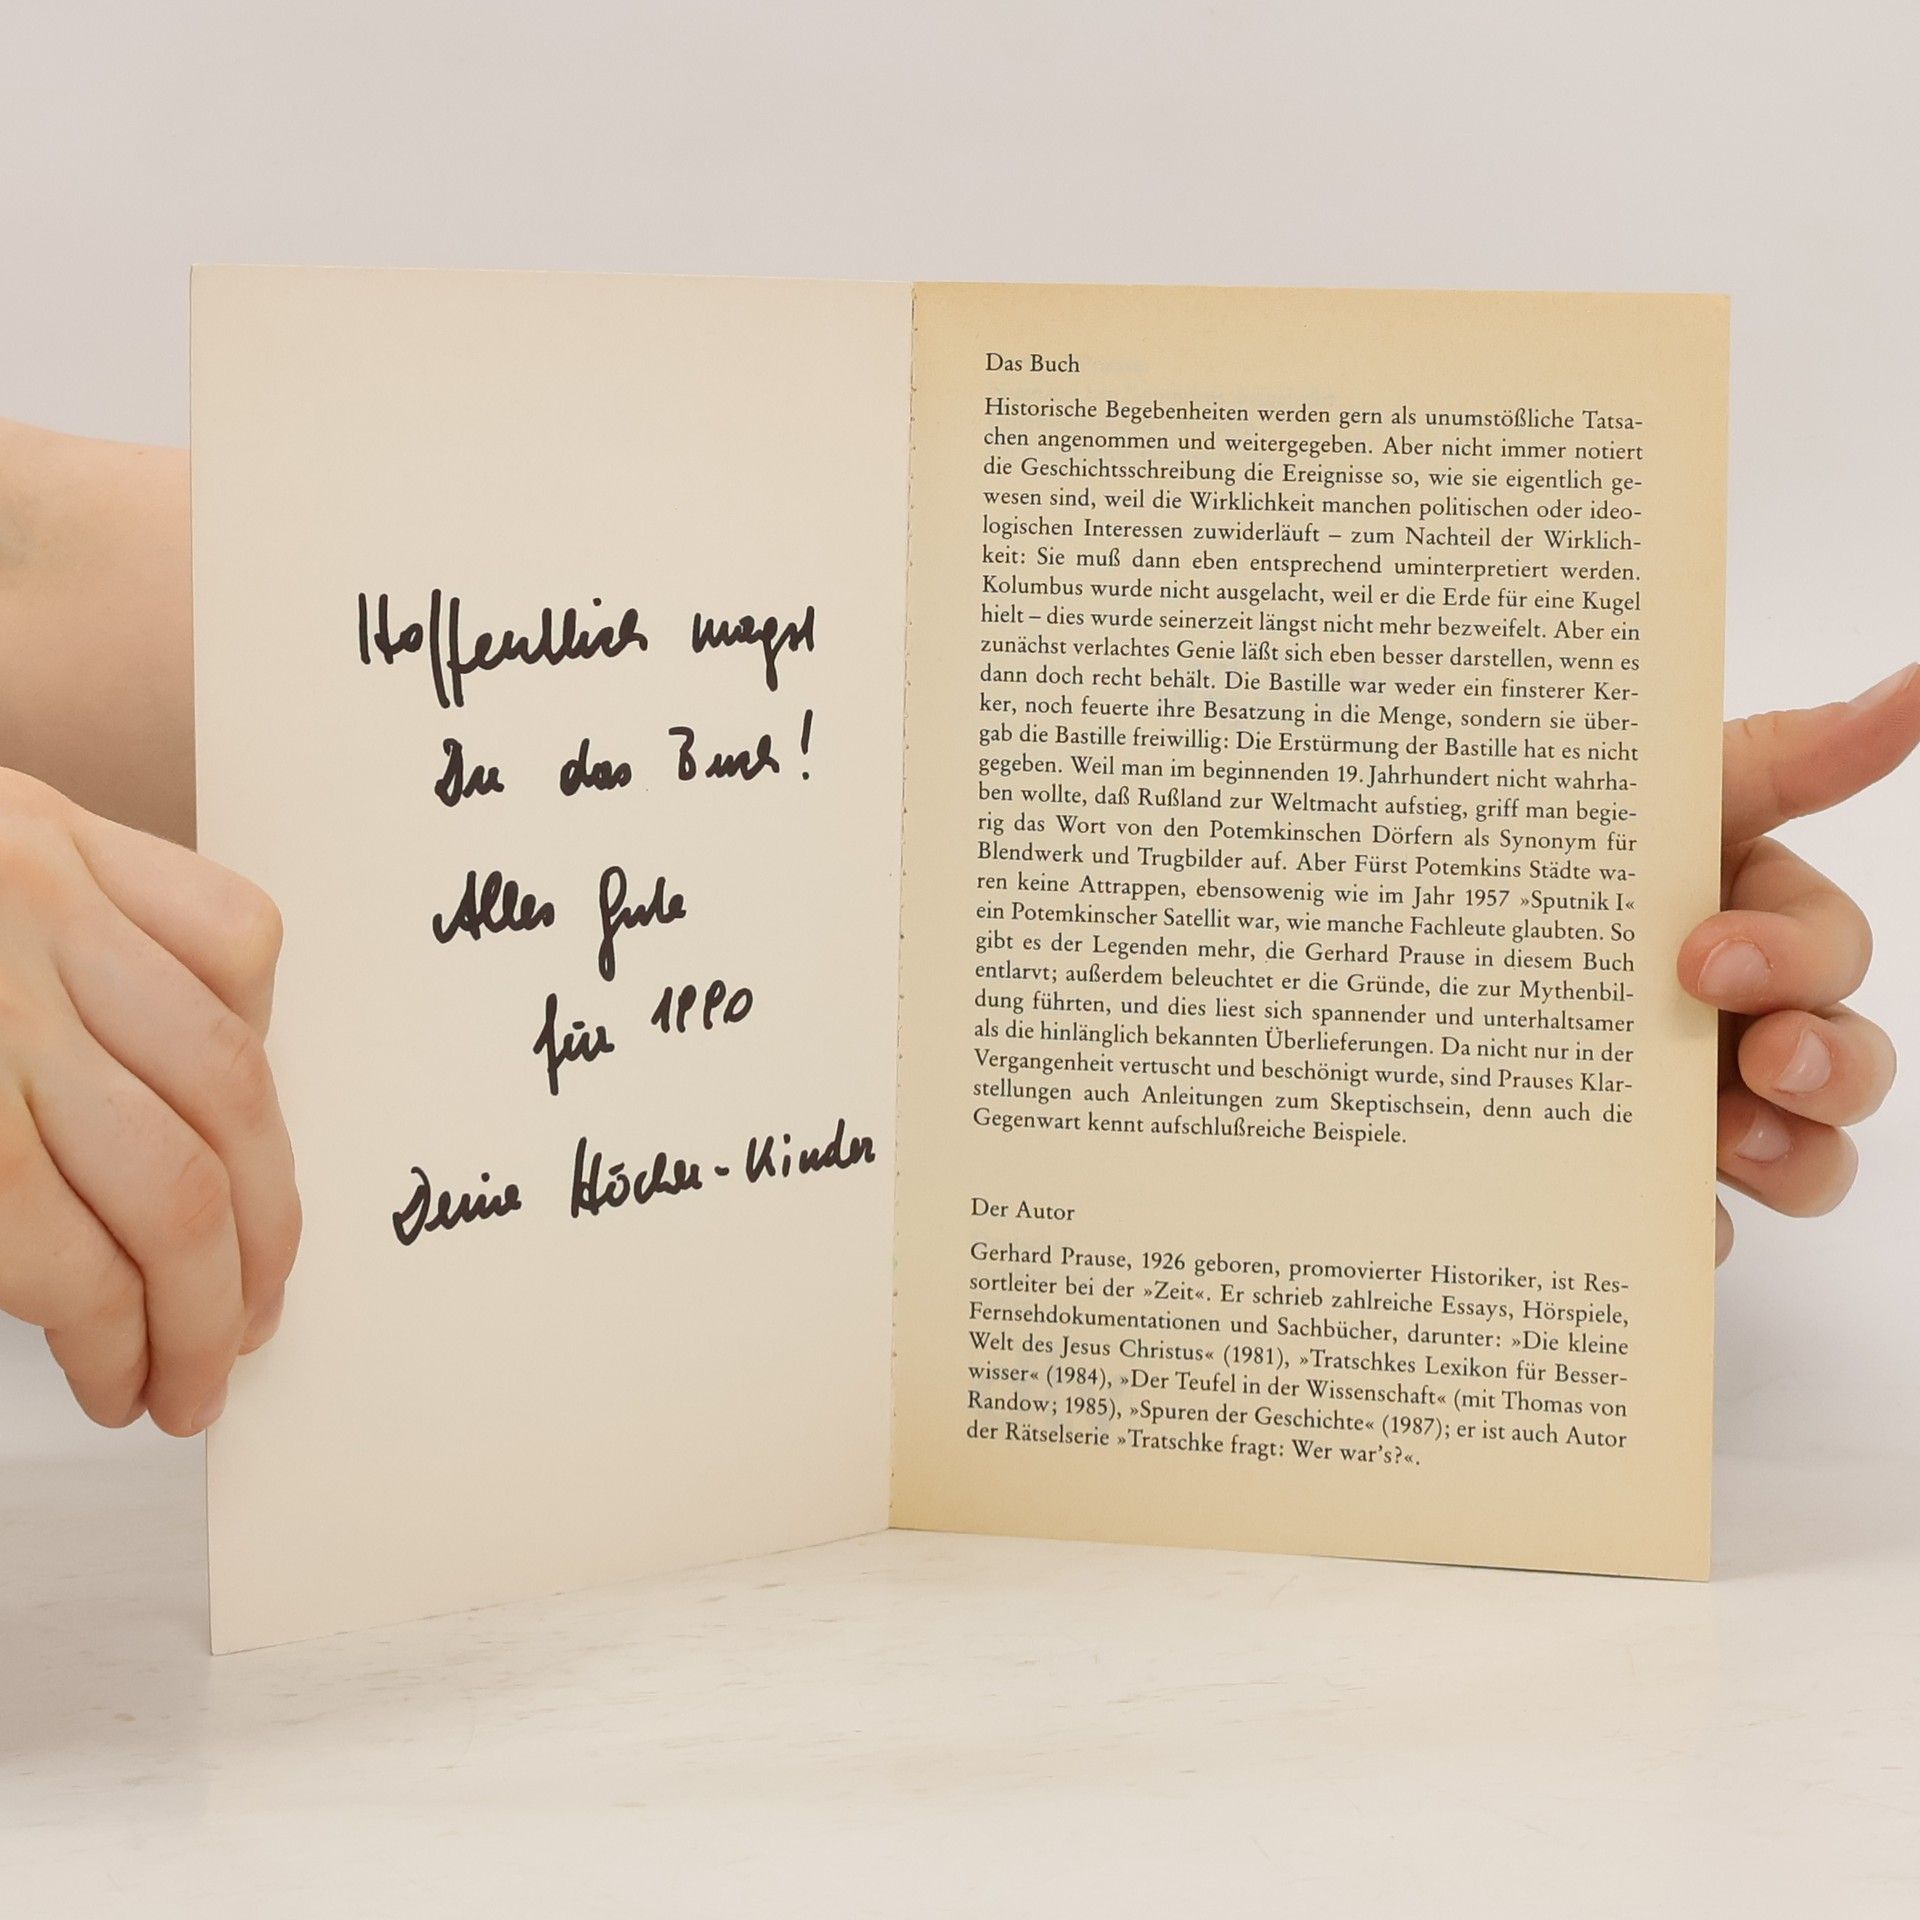 Hoffentlich magst
Du das Buch!
Alles Gute
für 1990
Deine Höcher-Kinder
Das Buch
Historische Begebenheiten werden gern als unumstößliche Tatsa-
chen angenommen und weitergegeben. Aber nicht immer notiert
die Geschichtsschreibung die Ereignisse so, wie sie eigentlich ge-
wesen sind, weil die Wirklichkeit manchen politischen oder ideo-
logischen Interessen zuwiderläuft – zum Nachteil der Wirklich-
keit: Sie muß dann eben entsprechend uminterpretiert werden.
Kolumbus wurde nicht ausgelacht, weil er die Erde für eine Kugel
hielt – dies wurde seinerzeit längst nicht mehr bezweifelt. Aber ein
zunächst verlachtes Genie läßt sich eben besser darstellen, wenn es
dann doch recht behält. Die Bastille war weder ein finsterer Ker-
ker, noch feuerte ihre Besatzung in die Menge, sondern sie über-
gab die Bastille freiwillig: Die Erstürmung der Bastille hat es nicht
gegeben. Weil man im beginnenden 19. Jahrhundert nicht wahrha-
ben wollte, daß Rußland zur Weltmacht aufstieg, griff man begie-
rig das Wort von den Potemkinschen Dörfern als Synonym für
Blendwerk und Trugbilder auf. Aber Fürst Potemkins Städte wa-
ren keine Attrappen, ebensowenig wie im Jahr 1957 »Sputnik I«
ein Potemkinscher Satellit war, wie manche Fachleute glaubten. So
gibt es der Legenden mehr, die Gerhard Prause in diesem Buch
entlarvt; außerdem beleuchtet er die Gründe, die zur Mythenbil-
dung führten, und dies liest sich spannender und unterhaltsamer
als die hinlänglich bekannten Überlieferungen. Da nicht nur in der
Vergangenheit vertuscht und beschönigt wurde, sind Prauses Klar-
stellungen auch Anleitungen zum Skeptischsein, denn auch die
Gegenwart kennt aufschlußreiche Beispiele.
Der Autor
Gerhard Prause, 1926 geboren, promovierter Historiker, ist Res-
sortleiter bei der »Zeit«. Er schrieb zahlreiche Essays, Hörspiele,
Fernsehdokumentationen und Sachbücher, darunter: »Die kleine
Welt des Jesus Christus« (1981), »Tratschkes Lexikon für Besser-
wisser« (1984), »Der Teufel in der Wissenschaft« (mit Thomas von
Randow; 1985), »Spuren der Geschichte« (1987); er ist auch Autor
der Rätselserie »Tratschke fragt: Wer war's?«.